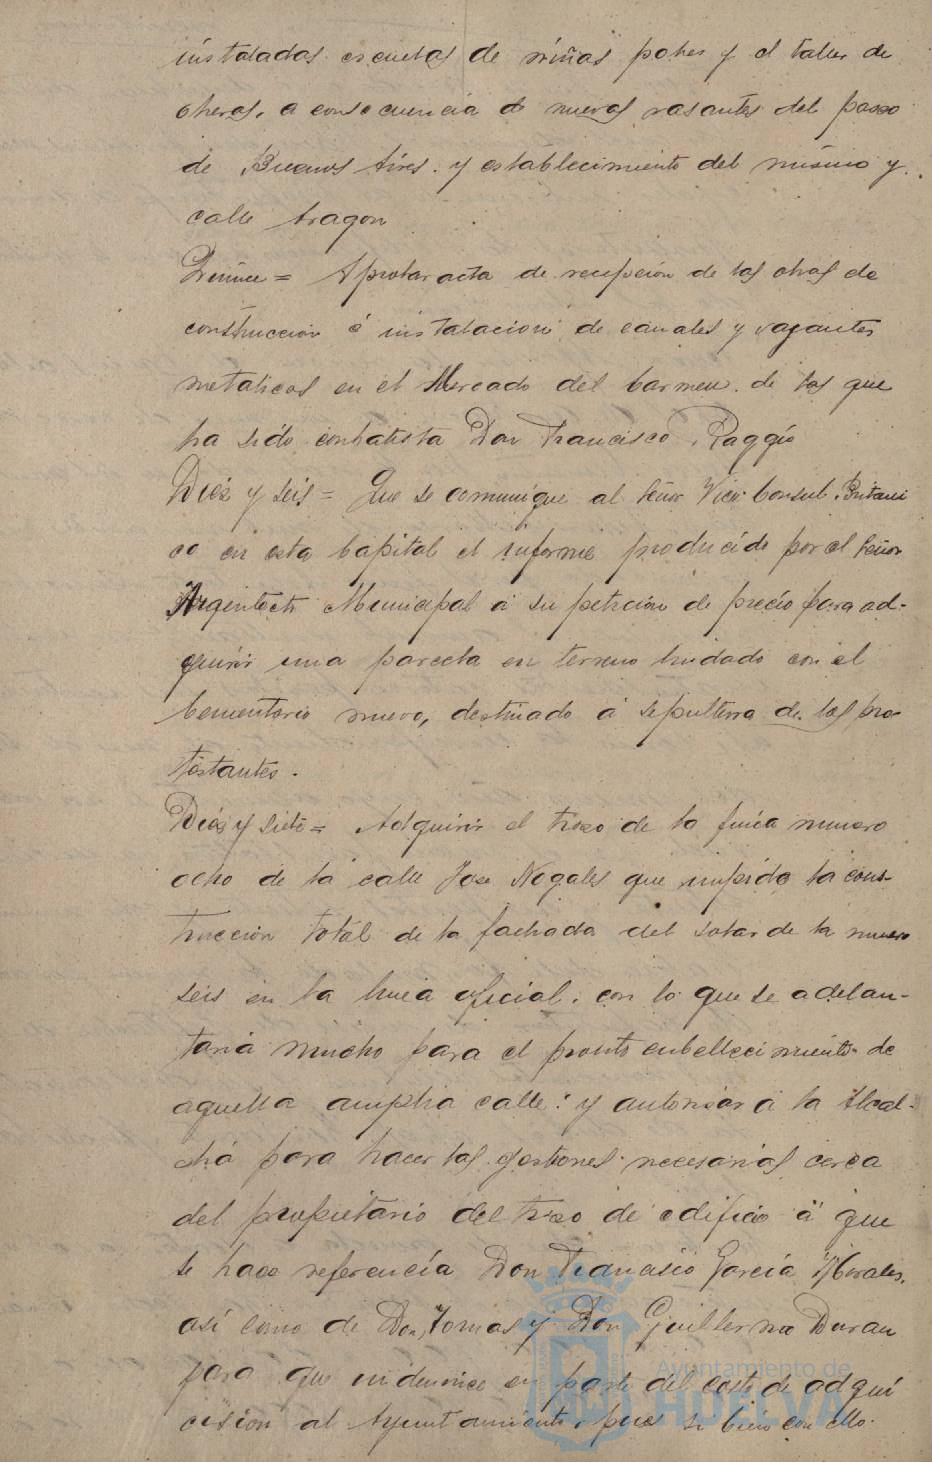 instaladas escuelas de niñas pobres y el taller de
obreras, a consecuencia de nuevas rasantes del paseo
de Buenos Aires. y establecimiento del mismo y
calle Aragon
Quince = Aprobar acta de recepción de las obras de
construccion é instalacion de canales y bajantes
metalicos en el Mercado del Carmen. de las que
ha sido contratista Don Francisco Raggio
Diéz y seis = Que se comunique al señor Vice Consul Britani
co en esta Capital el informe producido por el señor
Arquitecto Municipal á su petición de precio para ad-
quirir una parcela en terreno lindado con el
Cementerio nuevo, destinado á sepultura de los pro
testantes.
Diéz y siete = Adquirir el trozo de la finca numero
ocho de la calle Jose Nogales que impide la cons-
truccion total de la fachada del solar de la numero
seis en la linea oficial. con lo que se adelan-
taria mucho para el pronto embellecimiento de
aquella amplia calle: y autorizar á la Alcal-
día para hacer las gestiones necesarias cerca
del propietario del trozo de edificio á que
se hace referencia Don Francisco García Morales.
así como de Don Tomas y Don Guillermo Duran
para que indemnice en parte del coste de adqui
cision al Ayuntamiento, pues si bien con ello
Ayuntamiento de
HUELVA